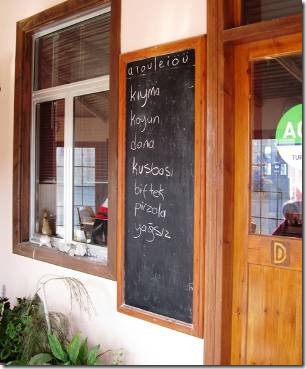 aıou|eiöü
kıyma
koyun
dana
kuşbaşı
biftek
pirzola
yağsız
D